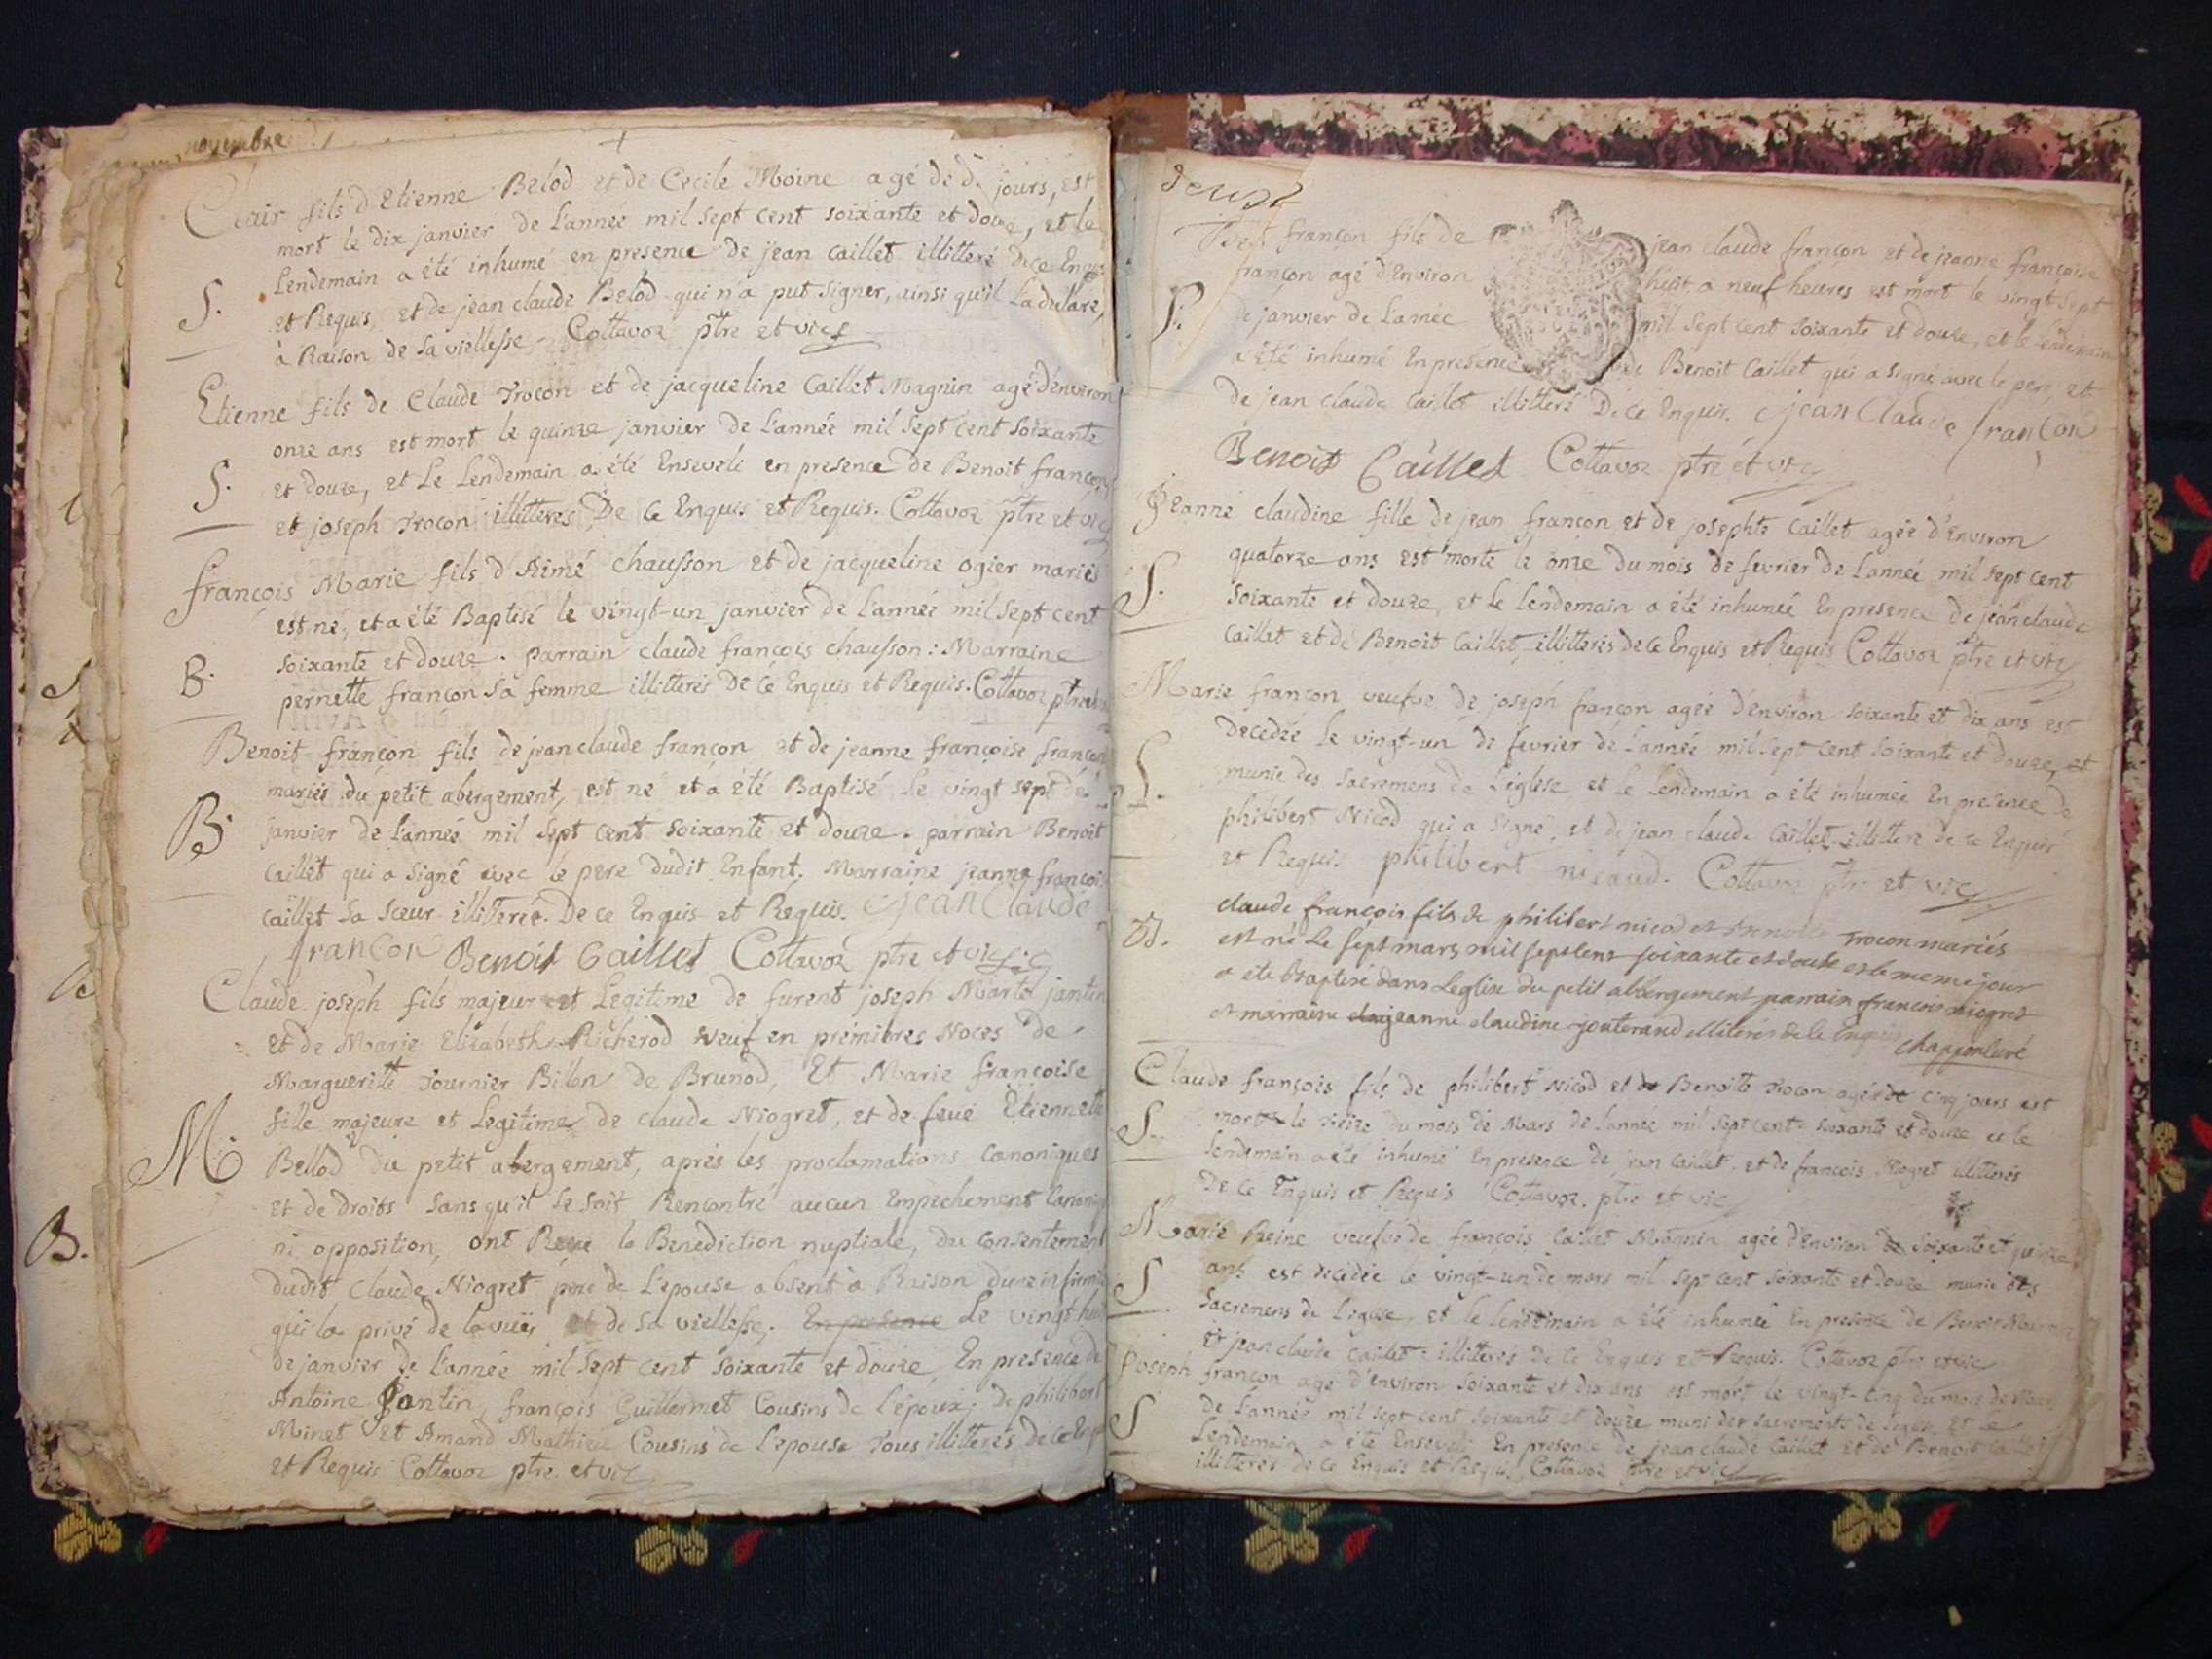 novembre
Clair fils d'Etienne Belod et de Cecile Moine agé de jours, est
mort le dix janvier de l'année mil sept cent soixante et douze, et le
Lendemain a été inhumé en presence de jean caillet illitteré de ce Enquis
S. et Requis, et de jean claude Belod qui n'a put signer, ainsi qu'il La
à Raison de sa viellesse - Cottavoz ptre et vic
Etienne fils de Claude Trocon et de jacqueline Caillet Magnin agé d'environ
onze ans est mort le quinze janvier de l'année mil sept cent soixante
S. et douze, et Le Lendemain a été Enseveli en presence de Benoit françon
et joseph Trocon illitterés De ce Enquis et Requis. Cottavoz ptre et vic
françois Marie fils d'Aimé chausson et de jacqueline ogier mariés
est né, et a été Baptisé le vingt-un janvier de l'année mil sept cent
B. soixante et douze. parrain claude françois chausson: Marraine
pernette françon sa femme illitterés De ce Enquis et Requis. Cottavoz ptre
Benoit françon fils de jean claude françon et de jeanne françoise françon
mariés du petit abergement, est né et a été Baptisé le vingt sept de
B. janvier de l'année mil sept cent soixante et douze. parrain Benoit
Caillet qui a signé avec le pere dudit Enfant. Marraine jeanne françoise
caillet sa sœur illiterée. De ce Enquis et Requis. jean Claude
francon Benoit Caillet Cottavoz ptre et vic
Claude joseph fils majeur et Legitime de furent joseph Marte jantin
et de Marie Elizabeth Richerod veuf en prémieres Noces de
Marguerite Tournier Billon de Brunod, Et Marie françoise
fille majeure et Legitime de claude Niogret, et de feue Etiennette
M. Bellod du petit abergement, après les proclamations canoniques
et de droits sans qu'il se soit Rencontré aucun Empechement Canonique
ni opposition, ont Reçue la Benediction nuptiale, du consentement
dudit Claude Niogret pere de L'epouse absent à Raison d'une infirmité
qui la privé de la vuë et de sa viellesse. En presence Le vingt huit
de janvier de l'année mil sept cent soixante et douze, En presence de
Antoine Jantin, françois Guillermet Cousins de l'époux; de philibert
Minet et Amand Mathieu Cousins de L'epouse Tous illitterés de ce Enquis
et Requis Cottavoz ptre et vic
B.
deux
françon fils de jean claude françon et de jeanne françoise
françon agé d'Environ huit a neuf heures est mort le vingt sept
S. de janvier de L'annee mil sept cent soixante et douze, et le lendemain
a été inhumé En presence de Benoit Caillet qui a signé avec le pere, et
de jean claude Caillet illitteré De ce Enquis. jean Claude francon
Benoit Caillet Cottavoz ptre et vic
Jeanne claudine fille de jean françon et de josephte Caillet agée d'Environ
quatorze ans est morte le onze du mois de fevrier de L'année mil sept cent
S. soixante et douze, et Le Lendemain a été inhumée En presence de jean claude
caillet et de Benoit Caillet illitterés de ce Enquis et Requis Cottavoz ptre et vic
Marie françon veufve de joseph françon agée d'environ soixante et dix ans est
decedée Le vingt-un de fevrier de l'année mil sept cent soixante et douze, et
S. munie des sacremens de L'eglise et le Lendemain a été inhumée En presence de
philibert Nicod qui a signé, et de jean claude Caillet illitteré de ce Enquis
et Requis philibert nicaud. Cottavoz ptre et vic
claude françois fils de philibert nicod et Trocon mariés
B. est né Le sept mars mil sept cent soixante et douze et le meme jour
a ete Baptisé dans Leglise du petit abbergement parrain françois niogret
et marraine jeanne claudine jouterand illiterés de ce Enquis chappon curé
Claude françois fils de philibert Nicod et de Benoite Trocon agé de cinq jours est
S. mort le treize du mois de Mars de l'année mil sept cent soixante et douze et le
lendemain a été inhumé En presence de jean Caillet, et de françois Niogret illitterés
De ce Enquis et Requis Cottavoz. ptre et vic
Marie Reine veufve de françois Caillet Magnin agée d'Environ de soixante et quinze
S ans est decédée le vingt-un de mars mil sept cent soixante et douze munie des
sacremens de l'eglise, et le lendemain a été inhumée En presence de Benoit
et jean claude Caillet illitterés de ce Enquis et Requis. Cottavoz ptre et vic
Joseph françon agé d'environ soixante et dix ans est mort le vingt-cinq du mois de Mars
S de l'année mil sept cent soixante et douze muni des sacrements de et le
Lendemain a été Enseveli En presence de jean claude Caillet et de Benoit Caillet
illitterés de ce Enquis et Requis Cottavoz ptre et vic